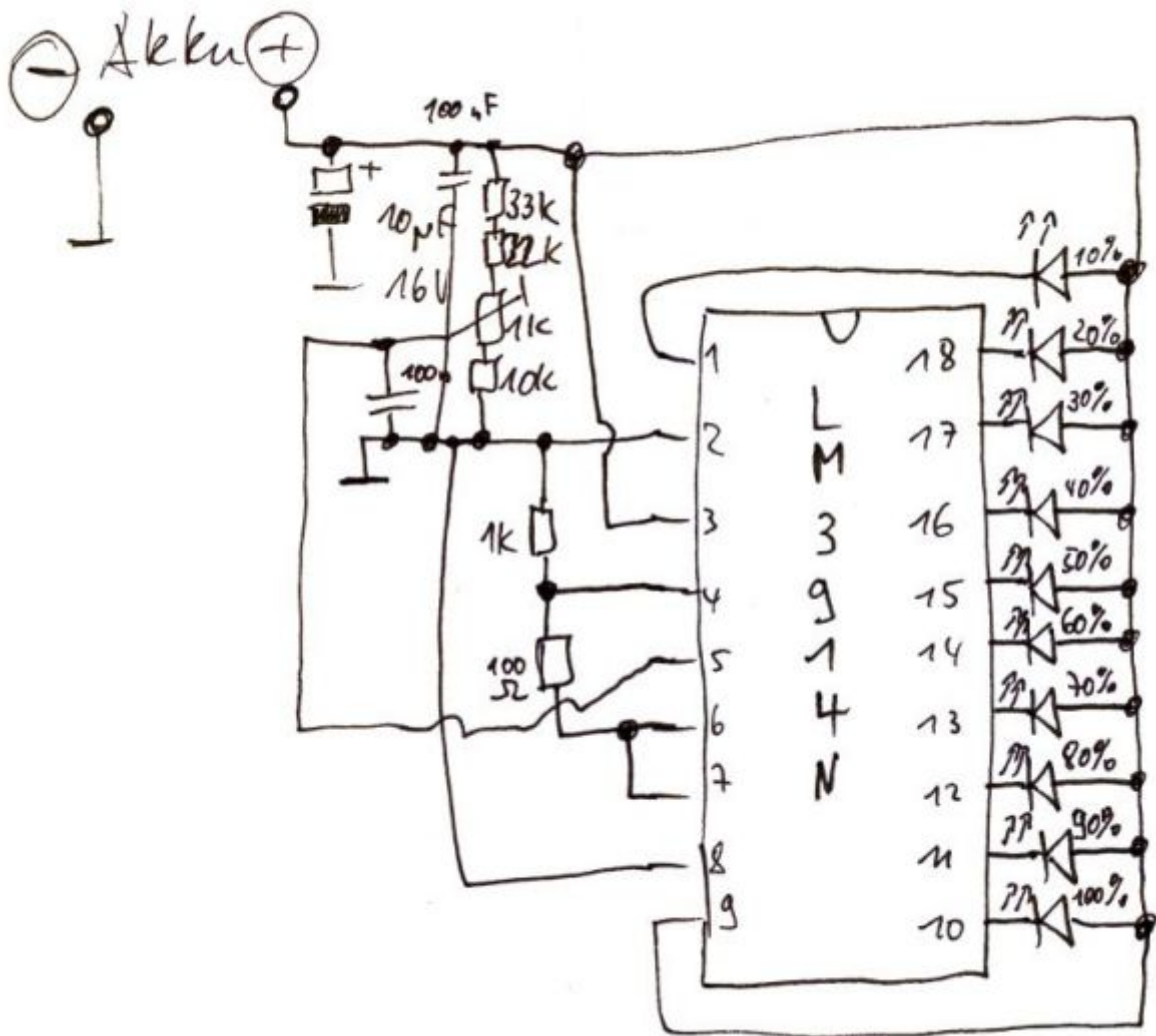 - Akku +
100nF
+
10µF
16V
33k
22k
1k
100n
10k
1k
100
Ω
1
2
3
4
5
6
7
8
9
L
M
3
9
1
4
N
18
17
16
15
14
13
12
11
10
10%
20%
30%
40%
50%
60%
70%
80%
90%
100%